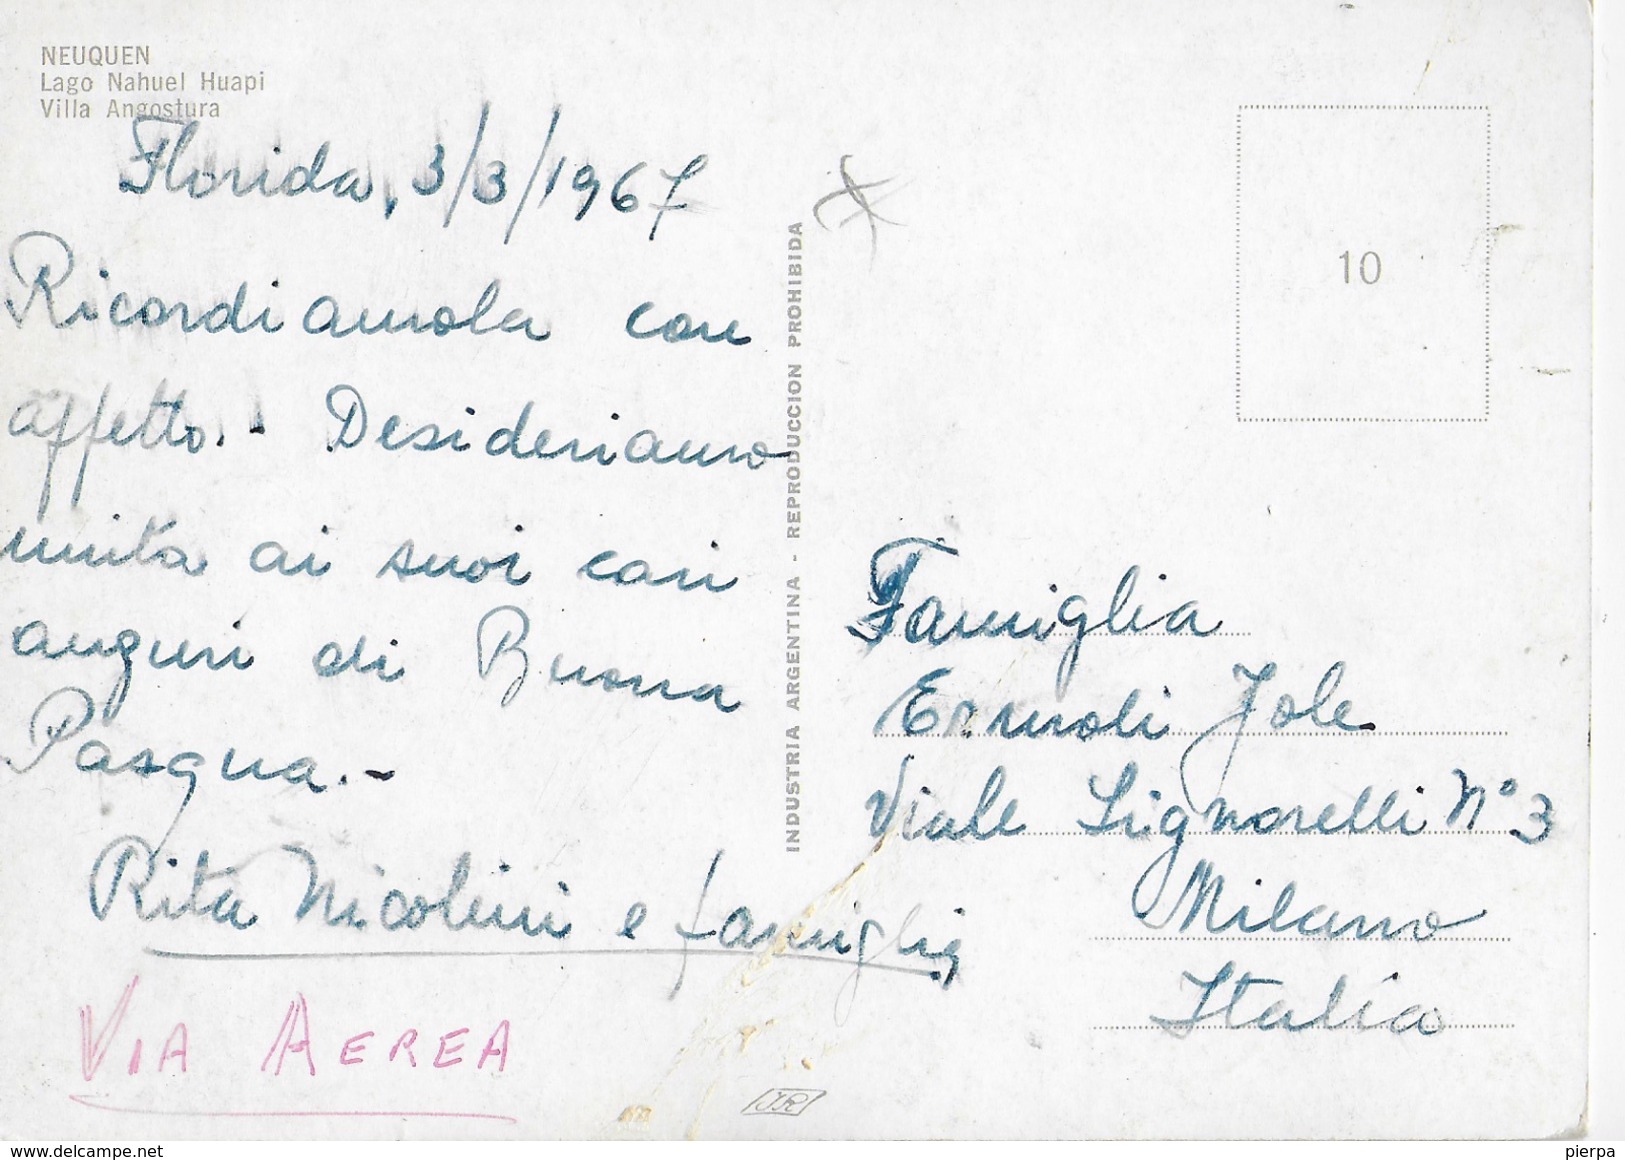 NEUQUEN
Lago Nahuel Huapi
Villa Angostura
Florida, 3/3/1967
Ricordiamola con
affetto.- Desideriamo
unita ai suoi cari
auguri di Buona
Pasqua.-
Rita Nicolini e famiglia
VIA AEREA
INDUSTRIA ARGENTINA - REPRODUCCION PROHIBIDA
10
Famiglia
Ermoli Jole
Viale Signorelli N° 3
Milano
Italia
JR
delcampe.net
pierpa